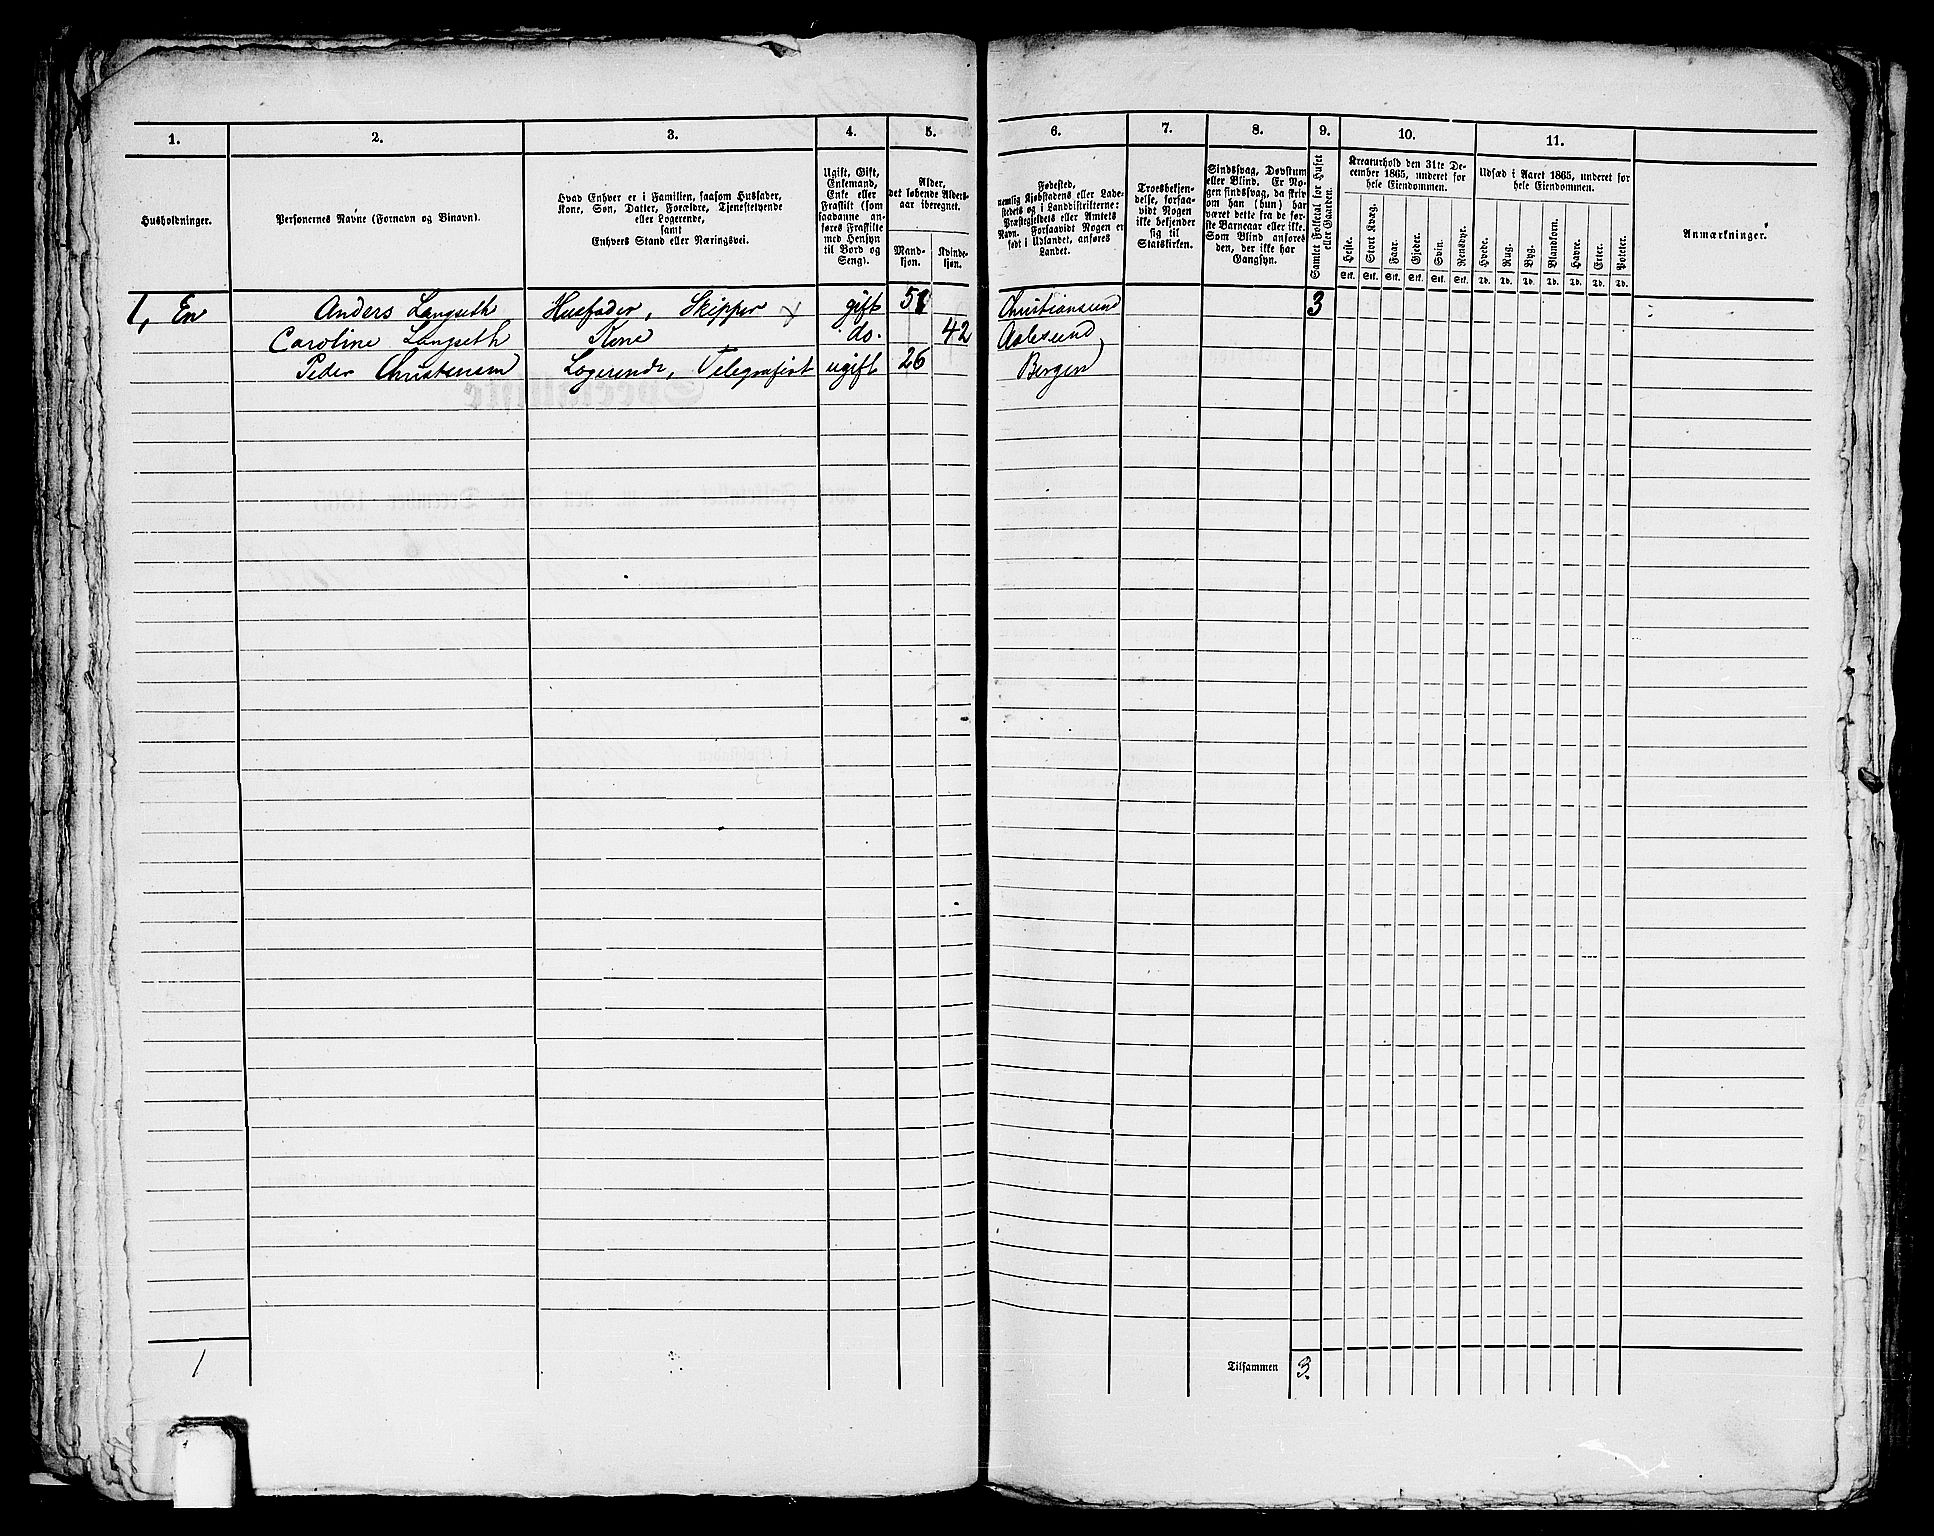 1. 2. 3. 4. 5. 6. 7. 8. 9. 10. 11.
Husholdninger.
Personernes Navne (Fornavn og Binavn).
Hvad Enhver er i Familien, saasom Husfader,
Kone, Søn, Datter, Forældre, Tjenestetyende
eller Logerende,
samt
Enhvers Stand eller Næringsvei.
Ugift, Gift,
Enkemand,
Enke eller
Fraskilt (som
saadanne an-
føres Fraskilte
med Hensyn
til Bord og
Seng).
Alder,
det løbende Alders-
aar iberegnet.
Mand-
kjøn.
Kvinde-
kjøn.
Fødested,
nemlig Kjøbstadens eller Lade-
stedets og i Landdistrikterne:
Præstegjeldets eller Amtets
Navn. Forsaavidt Nogen er
født i Udlandet, anføres
Landet.
Troesbekjen-
delse, forsaa-
vidt Nogen
ikke bekjender
sig til
Statskirken.
Sindssvag, Døvstum
eller Blind. Er No-
gen sindssvag, da skriv
om han (hun) har
været dette fra de før-
ste Barneaar eller ikke.
Som Blind anføres
den, der ikke har
Gangsyn.
Samlet Folketal for Huset
eller Gaarden.
Kreaturhold den 31te De-
cember 1865, underet for
hele Eiendommen.
Heste. Stort Kvæg. Faar. Gjeder. Svin. Rensdyr.
Stk. Stk. Stk. Stk. Stk. Stk.
Udsæd i Aaret 1865, underet for
hele Eiendommen.
Hvede. Rug. Byg. Blandkorn. Havre. Erter. Poteter.
Td. Td. Td. Td. Td. Td. Td.
Anmærkninger.
1, En Anders Langseth Husfader, Skipper gift 51 Christiansund 3
Caroline Langseth Kone do. 42 Aalesund
Peder Christensen Logerende, Telegrafist ugift 26 Bergen
1
Tilsammen 3.